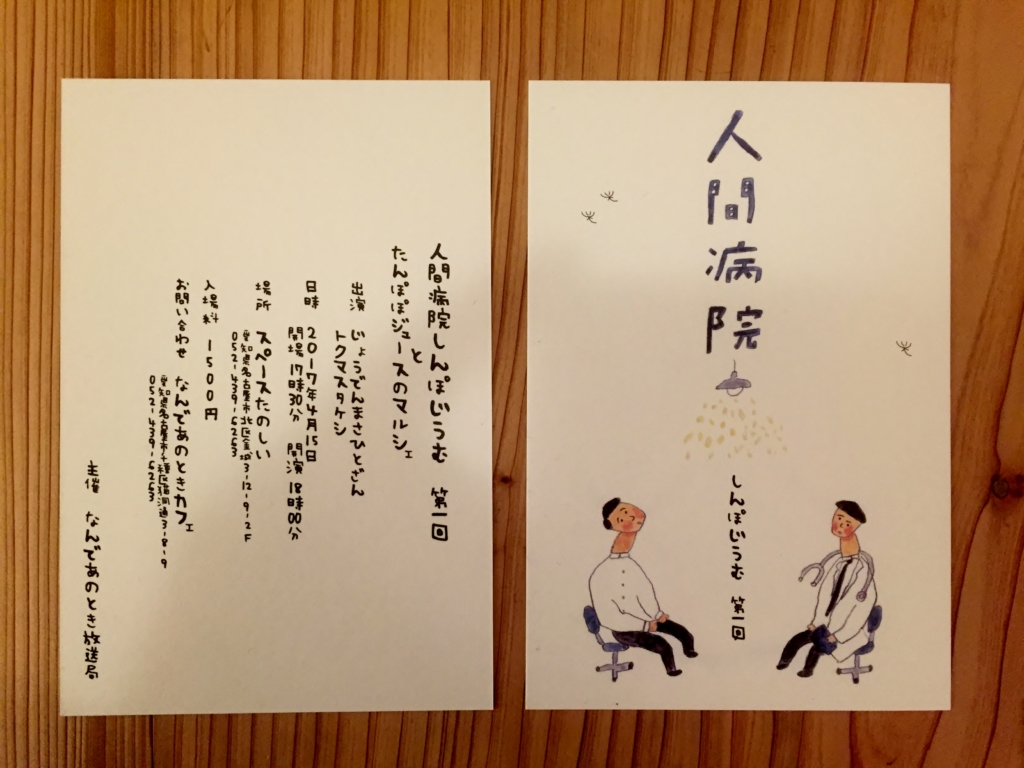 人間病院しんぽじうむ 第一回
と
たんぽぽジュースのマルシェ
出演 じょうでんまさひとさん
トクマスタケシ
日時 2017年4月15日
開場 17時30分 開演 18時00分
場所 スペースたのしい
愛知県名古屋市北区金城3-12-9-2F
052-439-6263
入場料 1500円
お問い合わせ なんであのときカフェ
愛知県名古屋市千種区猫洞通3-8-9
052-439-6263
主催 なんであのとき放送局
人間病院
しんぽじうむ 第一回